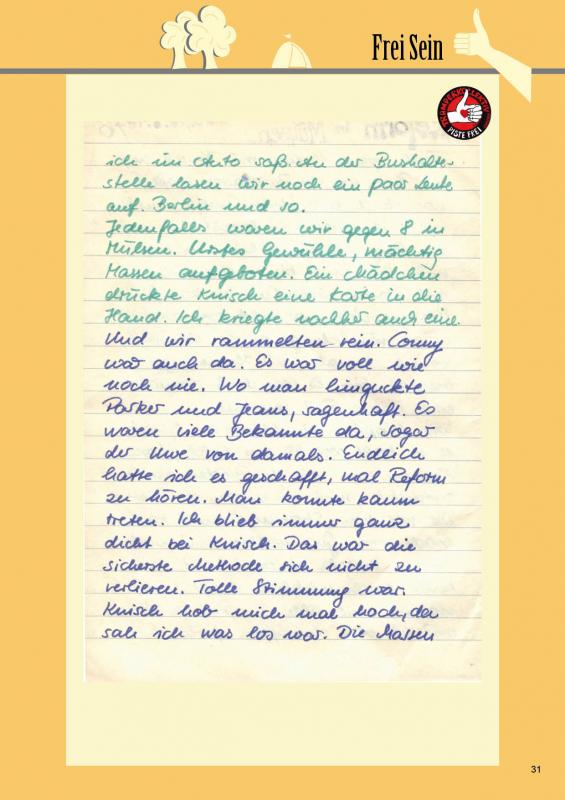 Frei Sein
TRAMPERKOLLEKTIV
PISTE FREI
ich im Auto saß. An der Bushalte-
stelle lasen wir noch ein paar Leute
auf. Berlin und so.
Jedenfalls waren wir gegen 8 in
Mülsen. Urstes Gewühle, mächtig
Massen aufgeboten. Ein Mädchen
drückte Knisch eine Karte in die
Hand. Ich kriegte nachher auch eine.
Und wir rammelten rein. Conny
war auch da. Es war voll wie
noch nie. Wo man hinguckte
Parker und Jeans, sagenhaft. Es
waren viele Bekannte da, sogar
der Uwe von damals. Endlich
hatte ich es geschafft, mal Reform
zu hören. Man konnte kaum
treten. Ich blieb immer ganz
dicht bei Knisch. Das war die
sicherste Methode sich nicht zu
verlieren. Tolle Stimmung war.
Knisch hob mich mal hoch, da
sah ich was los war. Die Massen
31